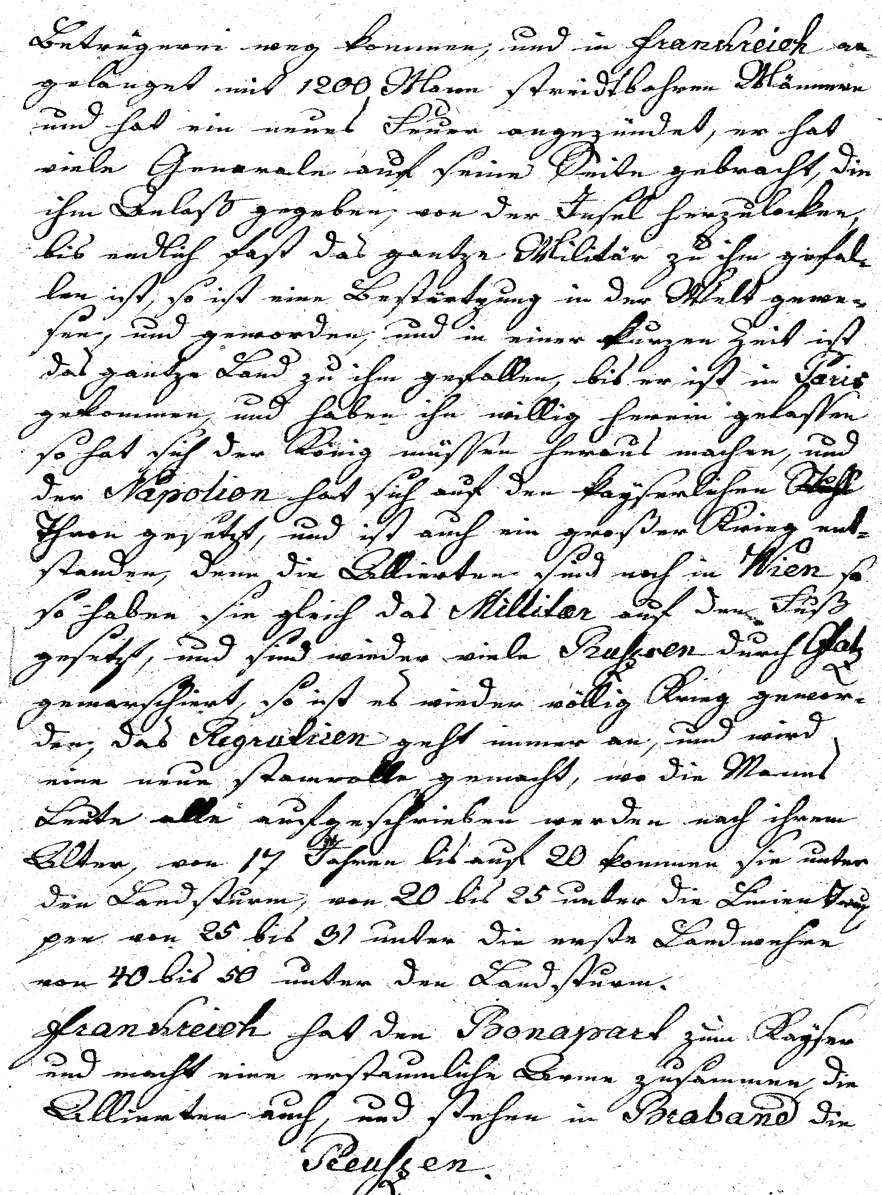 Betrügerei weg kommen, und in Franckreich an-
gelanget mit 1200 Mann streidtbahren Männern
und hat ein neues Feuer angezündet, er hat
viele Generale auf seine Seite gebracht, die
ihm Anlaß gegeben, von der Insel herzulocken,
bis endlich fast das gantze Militär zu ihm gefal-
len ist, so ist eine Bestürtzung in der Welt gewe-
sen, und geworden, und in einer kurzen Zeit ist
das gantze Land zu ihm gefallen, bis er ist in Paris
gekommen, und haben ihn willig herein gelassen
so hat sich der König müssen heraus machen, und
der Napolion hat sich auf den kayserlichen
Thron gesetzt, und ist auch ein großer Krieg ent-
standen, denn die Allierten sind noch in Wien so
so haben sie gleich das Millitær auf den Fuß
gesetzt, und sind wieder viele Russen durch Glatz
gemarschiert, so ist es wieder völlig Krieg gewor-
den, das Regrutiren geht immer an, und wird
eine neue stamrolle gemacht, wo die Manns
Leute alle aufgeschrieben werden nach ihrem
Alter, von 17 Jahren bis auf 20 kommen sie unter
den Landsturm, von 20 bis 25 unter die Linien Trup
pen von 25 bis 31 unter die erste Landwehre
von 40 bis 50 unter den Landsturm.
Franckreich hat den Bonapart zum Kayser
und macht eine erstaunliche Arme zusammen, die
Allierten auch, und stehen in Braband die
Preussen.